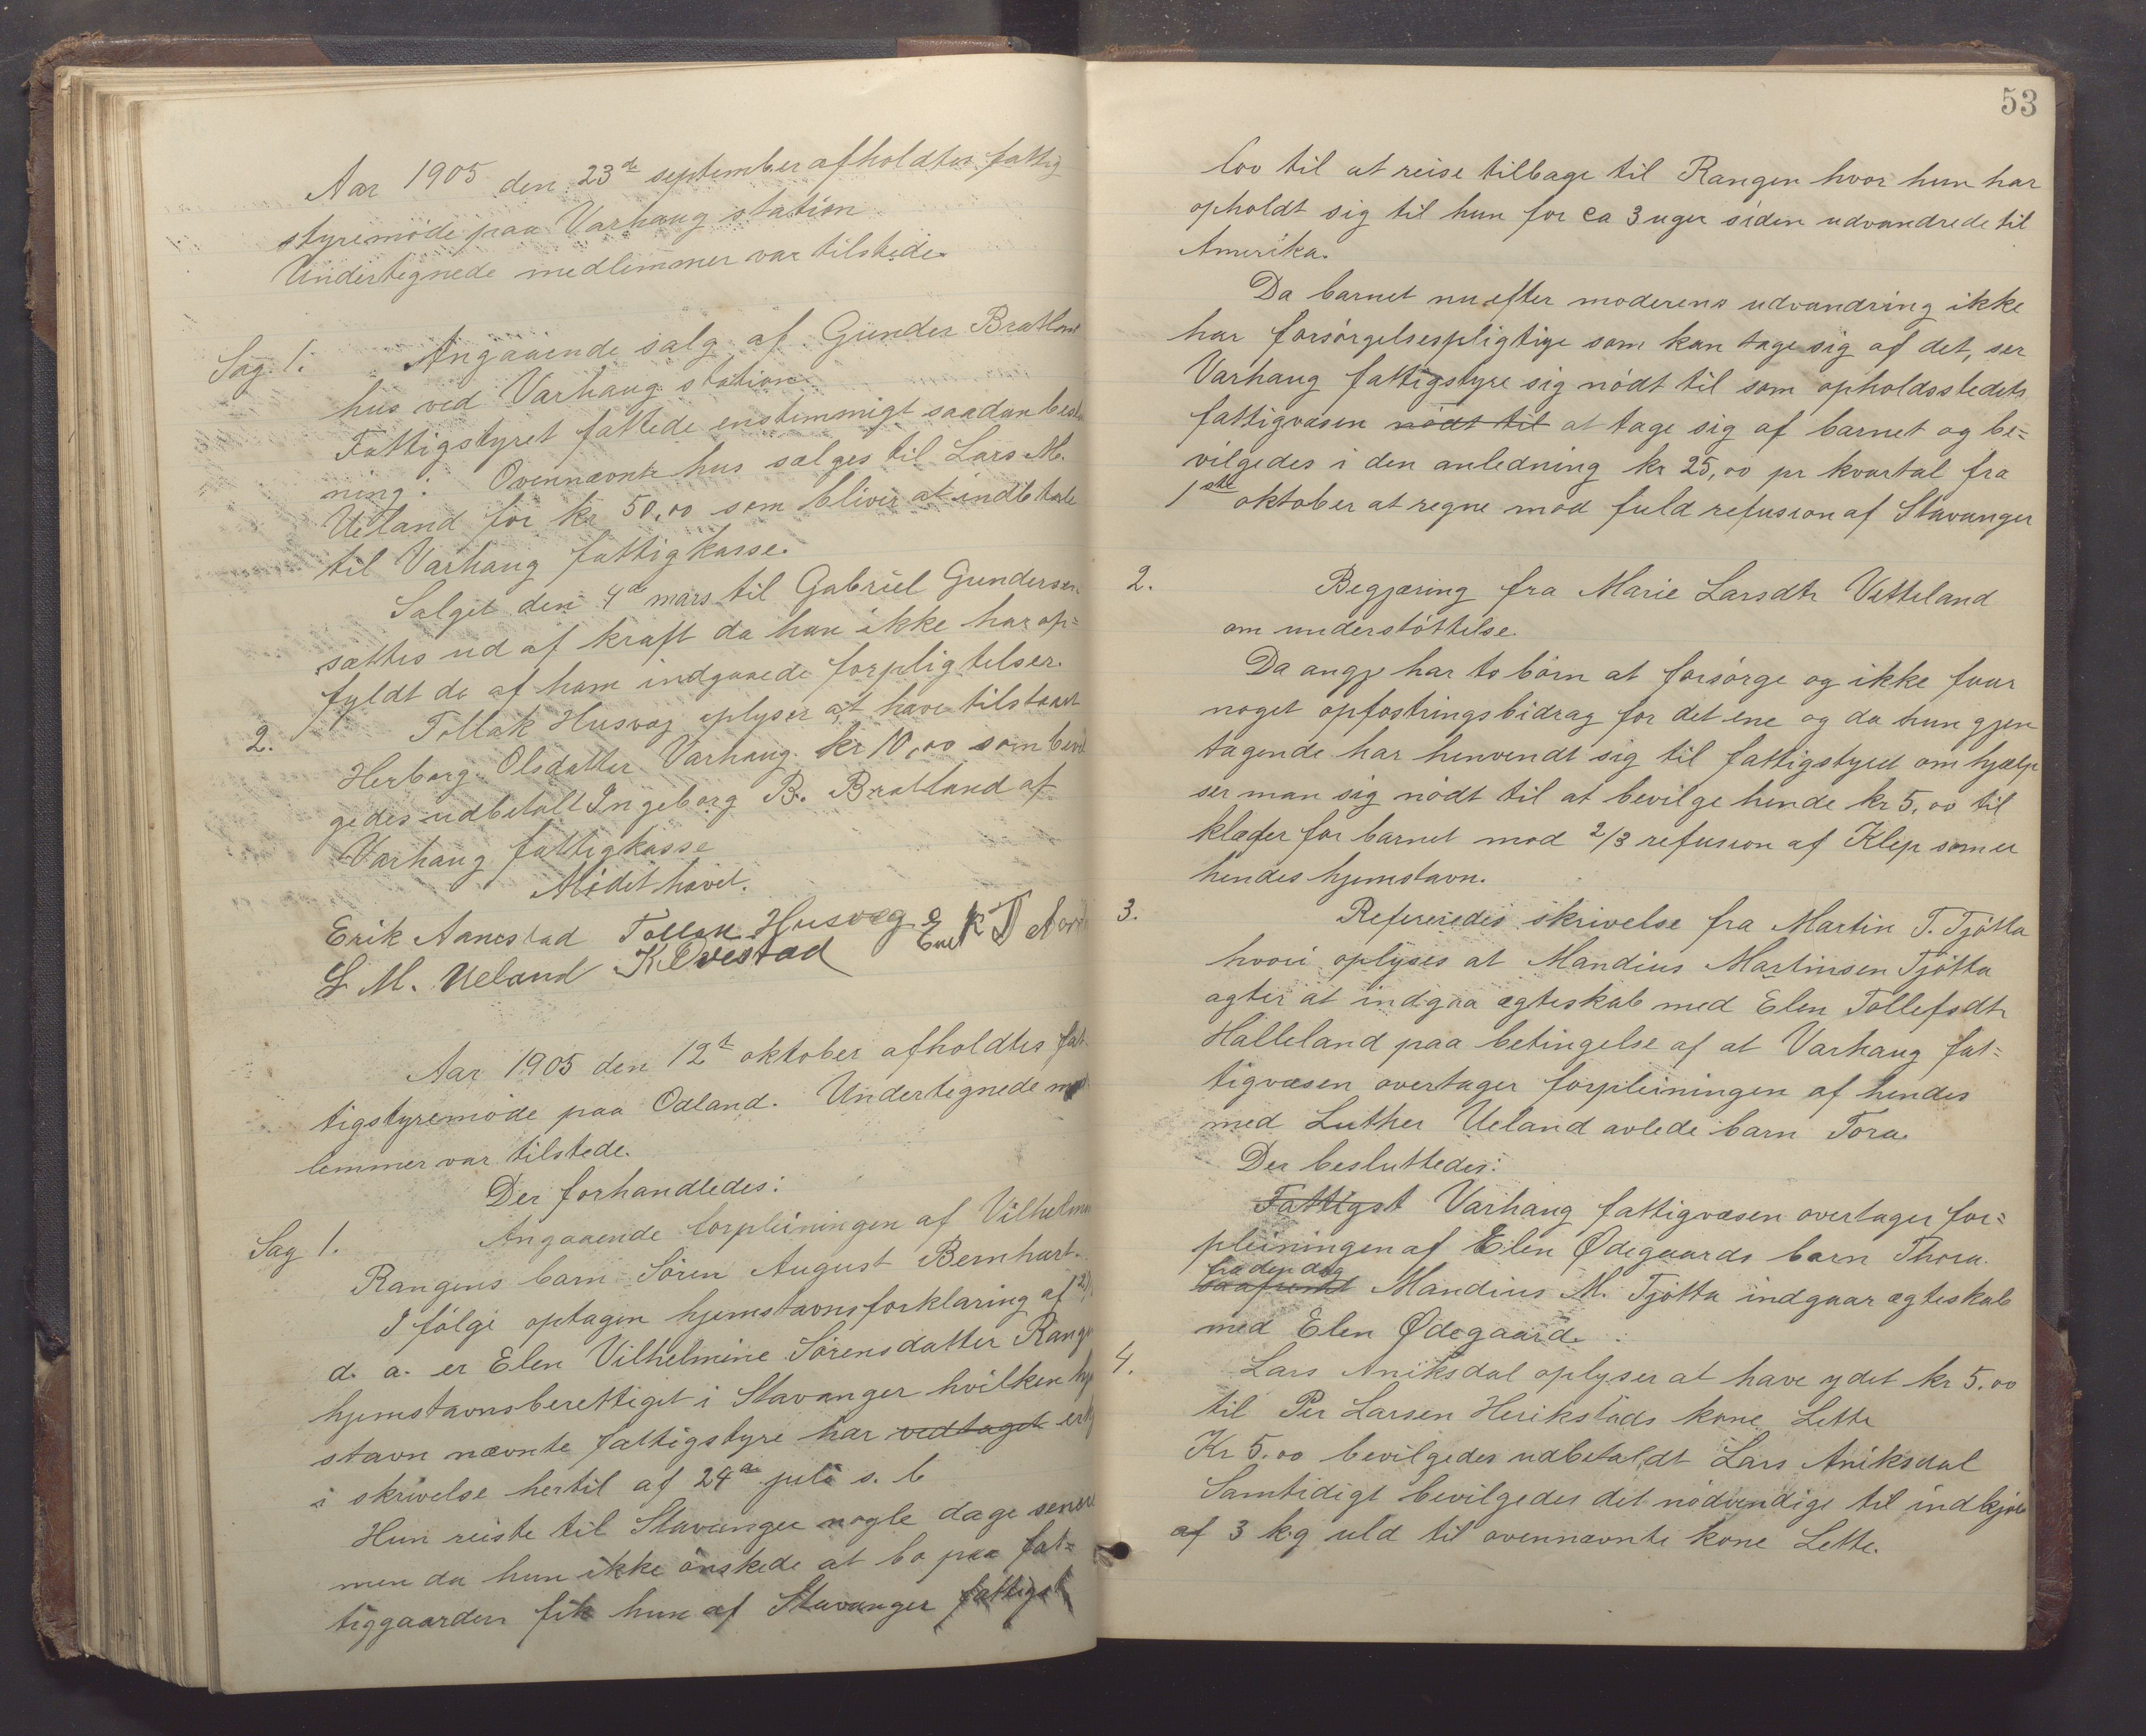 Aar 1905 den 23de september afholdtes fattig
styremøde paa Varhaug station
Undertegnede medlemmer var tilstede.
Sag 1. Angaaende salg af Gunder Bratland
hus ved Varhaug station.
Fattigstyret fattede enstemmigt saadan beslu
ning: Ovennævnte hus sælges til Lars M.
Ueland for kr 50,00 som bliver at indbetale
til Varhaug fattigkasse.
Salget den 4de mars til Gabriel Gundersen
sættes ud af kraft da han ikke har op=
fyldt de af ham indgaaede forpligtelser.
2. Tollak Husvæg oplyser at have tilstaaet
Herborg Olsdatter Varhaug kr 10,00 som bevil
gedes udbetalt Ingeborg B. Bratland af
Varhaug fattigkasse
Mødet hævet.
Erik Aanestad Tollak Husvæg
L. M. Ueland K Ovestad
Aar 1905 den 12te oktober afholdtes fat
tigstyremøde paa Odland. Undertegnede med
lemmer var tilstede.
Der forhandledes:
Sag 1. Angaaende forpleiningen af Vilhelmine
Rangens barn Søren August Bernhart.
I følge optagen hjemstavnsforklaring af 12/
d. a. er Elen Vilhelmine Sørensdatter Rangen
hjemstavnsberettiget i Stavanger hvilken hjem
stavn nævnte fattigstyre har vedtaget erkj
i skrivelse hertil af 24de juli s. l
Hun reiste til Stavanger nogle dage senere
men da hun ikke ønskede at bo paa fat=
tiggaarden fik hun af Stavanger fattigst
53
lov til at reise tilbage til Rangen hvor hun har
opholdt sig til hun for ca 3 uger siden udvandrede til
Amerika.
Da barnet nu efter moderens udvandring ikke
har forsørgelsespligtige som kan tage sig af det, ser
Varhaug fattigstyre sig nødt til som opholdsstedets
fattigvæsen nødt til at tage sig af barnet og be=
vilgedes i den anledning kr 25,00 pr kvartal fra
1ste oktober at regne mod fuld refusion af Stavanger
2. Begjæring fra Marie Larsdtr Vetteland
om understøttelse.
Da angj har to børn at forsørge og ikke faar
noget opfostringsbidrag for det ene og da hun gjen
tagende har henvendt sig til fattigstyret om hjælp
ser man sig nødt til at bevilge hende kr 5,00 til
klæder for barnet mod 2/3 refusion af Klep som er
hendes hjemstavn.
3. Refereredes skrivelse fra Martin T. Tjøtta
hvori oplyses at Mandius Martinsen Tjøtta
agter at indgaa ægteskab med Elen Tollefsdtr
Halleland paa betingelse af at Varhaug fat=
tigvæsen overtager forpleiningen af hendes
med Luther Ueland avlede barn Tora.
Der besluttedes:
Fattigst Varhaug fattigvæsen overtager for=
pleiningen af Elen Ødegaards barn Thora
fra den dag
saafremt Mandius M. Tjøtta indgaar ægteskab
med Elen Ødegaard.
4. Lars Aniksdal oplyser at have ydet kr 5.00
til Per Larsen Herikstads kone Lette
Kr 5.00 bevilgedes udbetaldt Lars Aniksdal
Samtidigt bevilgedes det nødvendige til indkjøb
af 3 kg uld til ovennævnte kone Lette.